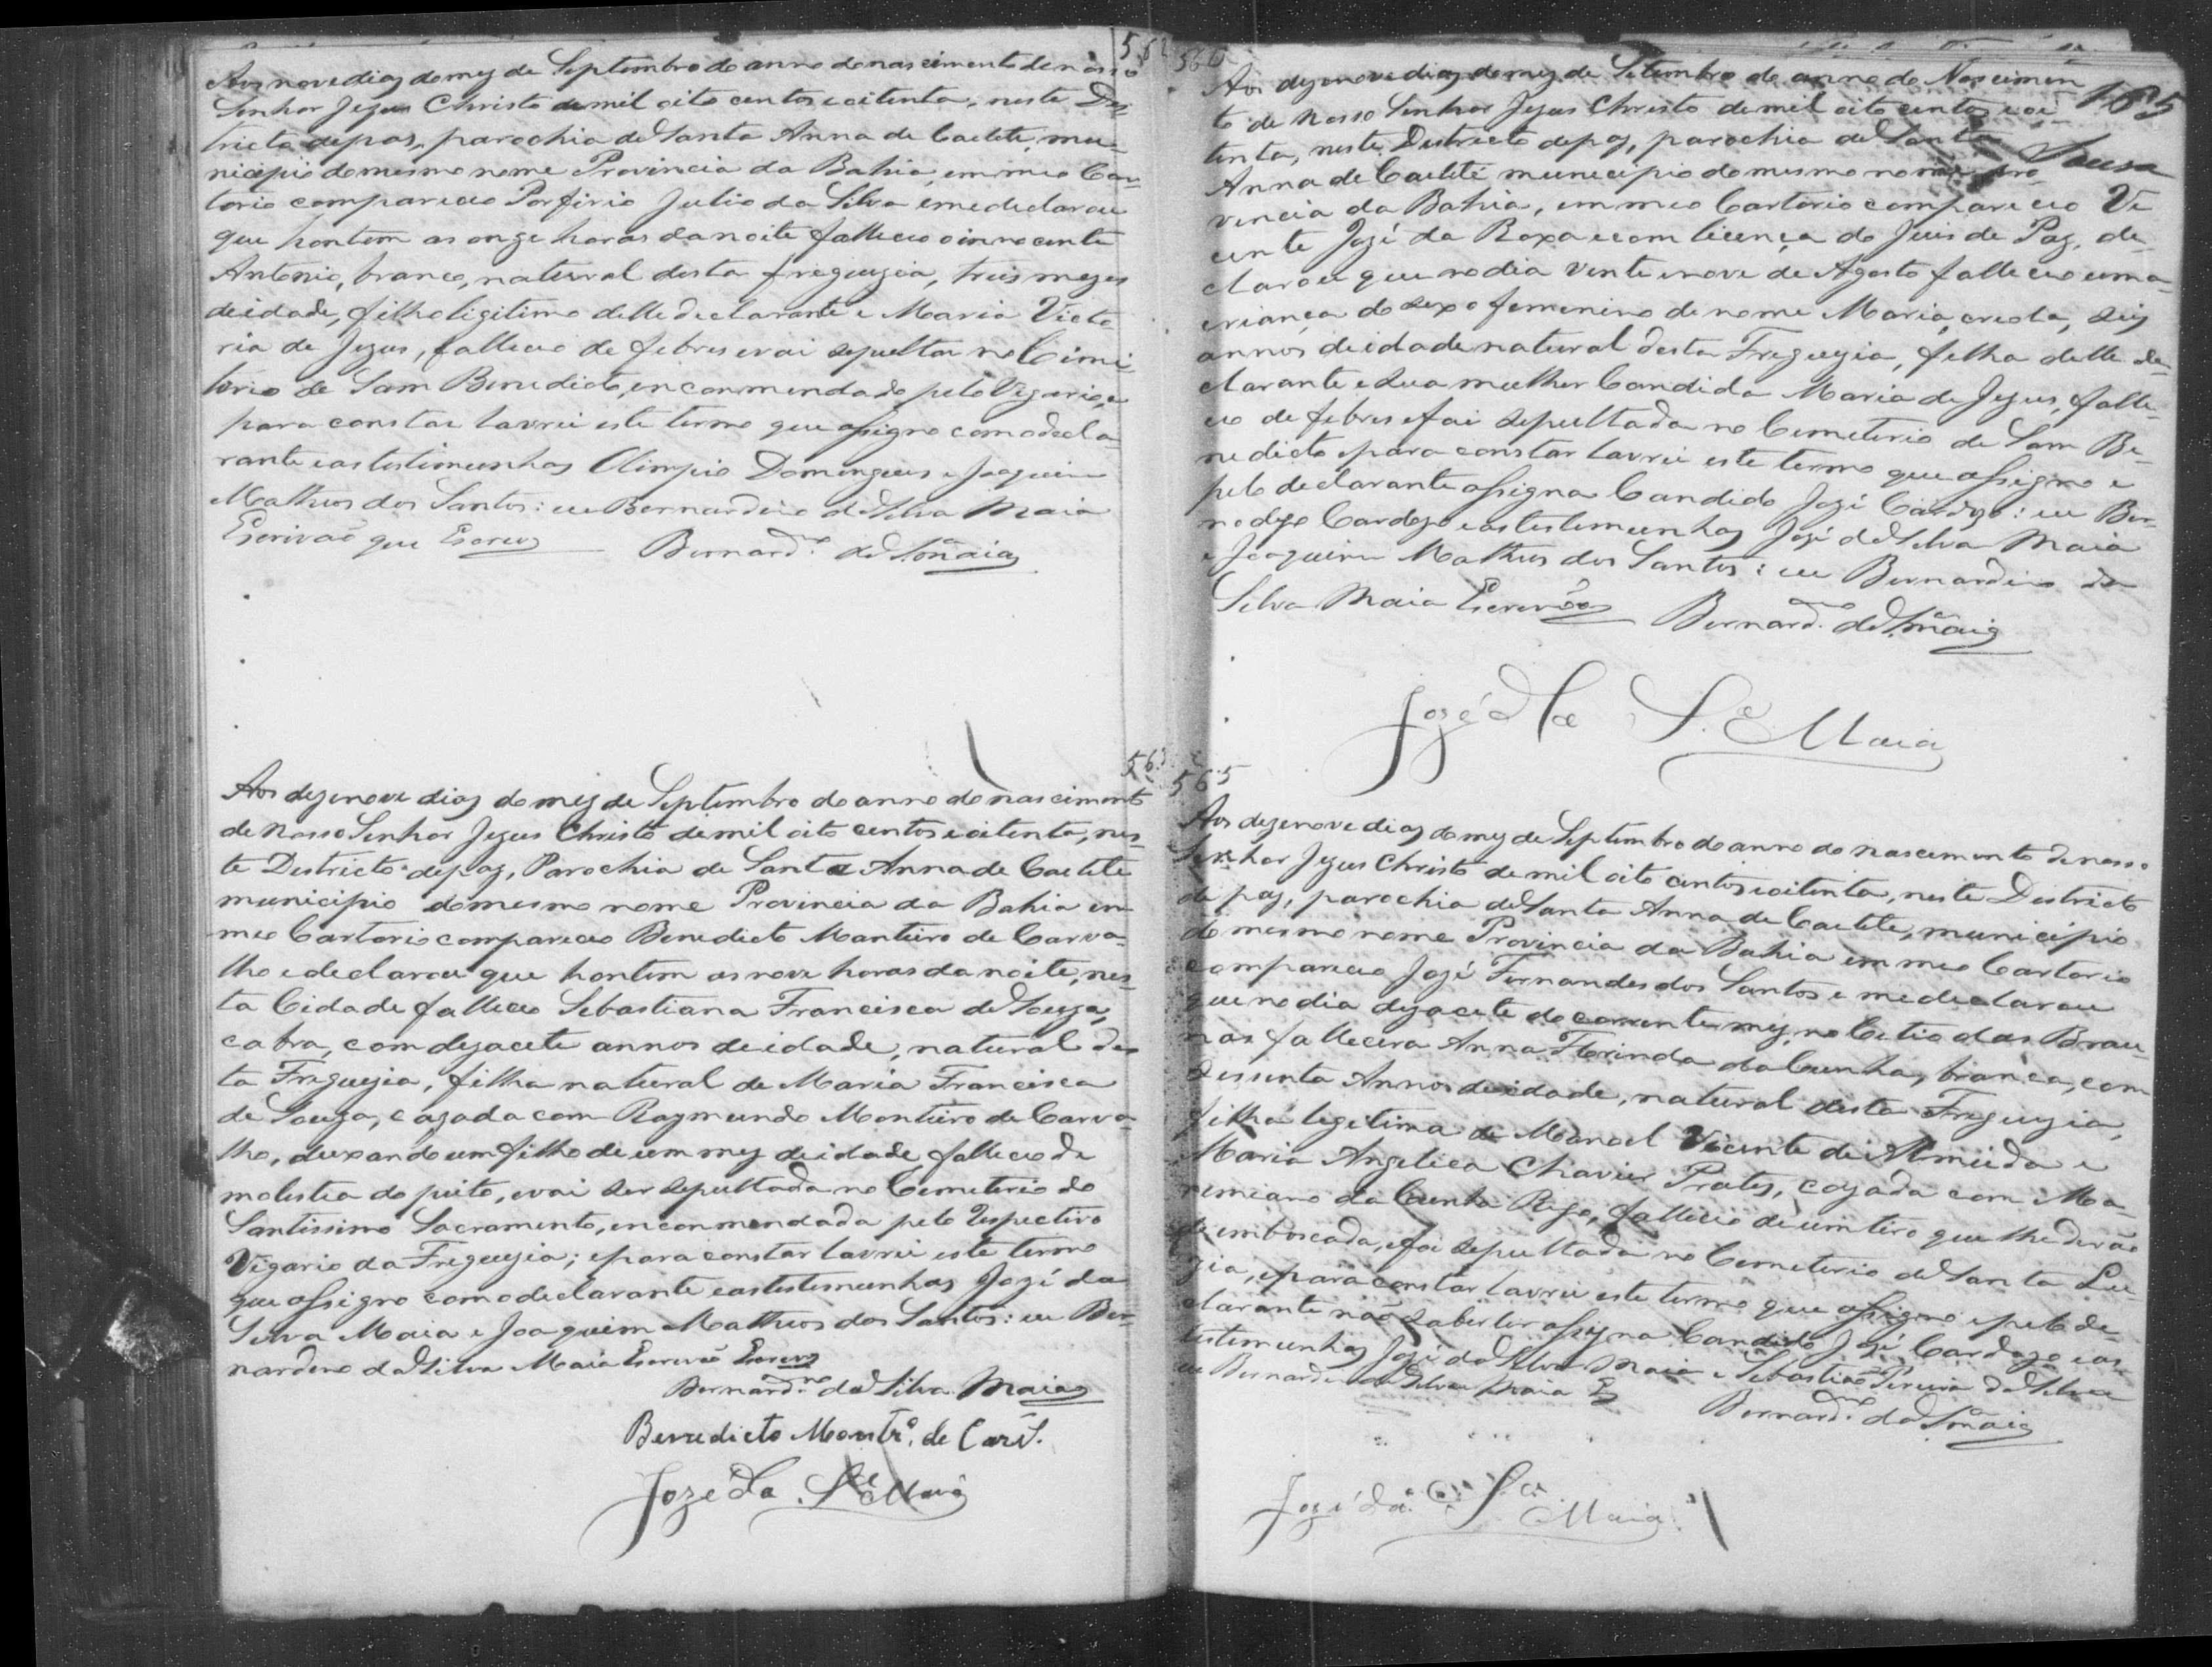 562
Aos nove dias do mez de Septembro do anno do nascimento de nosso
Senhor Jezus Christo de mil oito centos e oitenta, neste Dis-
tricto de pas, parochia de Santa Anna de Caetete, mu-
nicipio do mesmo nome Provincia da Bahia, em meo Car-
torio compareceo Porfirio Julio da Silva e me declarou
que hontem as onze horas da noite falleceo o innocente
Antonio, branco, natural desta freguezia, tres mezes
de idade, filho ligitimo delle declarante e Maria Victo
ria de Jezus, falleceo de febres e vai sepultar no Cimi-
terio de Sam Benedicto, enconmendado pelo Vigario, e
para constar lavrei este termo que assigno com o decla-
rante e as testimunhas Olimpio Domingues e Joaquim
Matheos dos Santos: eu Bernardino da Silva Maia
Escrivaõ que Escrevy
Bernard.no da S.a Maia
563
Aos dezenove dias do mez de Septembro do anno do nascimento
de Nosso Senhor Jezus Christo de mil oito centos e oitenta, nes-
te Districto de paz, Parochia de Santa Anna de Caetete
municipio do mesmo nome Provincia da Bahia em
meo Cartorio compareceo Benedicto Monteiro de Carva-
lho e declarou que hontem as nove horas da noite, nes-
ta Cidade falleceo Sebastiana Francisca de Souza,
cabra, com dezacete annos de idade, natural des
ta Freguezia, filha natural de Maria Francisca
de Souza, cazada com Raymundo Monteiro de Carva-
lho, deixando um filho de um mez de idade falleceo de
molestia do peito, e vai ser sepultada no Cemeterio do
Santissimo Sacramento, enconmendada pelo Respectivo
Vigario da Freguezia; e para constar lavrei este termo
que assigno com o declarante e as testemunhas Jozé da
Silva Maia e Joaquim Matheos dos Santos: eu Ber-
nardino da Silva Maia Escrivaõ Escrevy
Bernard.no da Silva Maia
Benedicto Montr.o de Carv.
Joze da S.a Maia
165
Sousa
Aos dezenove dias do mez de Setembro do anno do Nascimen
to de Nosso Senhor Jezus Christo de mil oito centos e oi
tenta, neste Districto de paz, parochia de Santa
Anna de Caetité municipio do mesmo nome Pro
vincia da Bahia, em meo Cartorio compareceo Vi
cente Jozé da Roxa e com licença do Juis de Paz, de-
clarou que no dia vinte e nove de Agosto falleceo uma
criança do sexo femenino de nome Maria, creola, seis
annos de idade natural desta Freguezia, filha delle de-
clarante e sua mulher Candida Maria de Jezus, falle-
ceo de febres e foi sepultada no Cemeterio de Sam Be-
nedicto e para constar lavrei este termo que assigno e
pelo declarante assigna Candido Jozé Cardozo: eu Ber-
no digo Cardozo e as testemunhas Jozé da Silva Maia
e Joaquim Matheus dos Santos: eu Bernardino da
Silva Maia Escrivaõ
Bernard.no da S.a Maia
Jozé da S.a Maia
565
Aos dezenove dias do mez de Septembro do anno do nascimento de nosso
Senhor Jezus Christo de mil oito centos e oitenta, neste Districto
de paz, parochia de Santa Anna de Caetete, municipio
do mesmo nome Provincia da Bahia em meo Cartorio
compareceo Jozé Fernandes dos Santos e me declarou
que no dia dezacete do corrente mez, no Citio das Brau-
nas fallecera Anna Florinda da Cunha, branca, com
Sessenta Annos de idade, natural desta Freguezia,
filha legitima de Manoel Vicente de Almeida e
Maria Angelica Chavier Prates, cazada com Ma-
remiano da Cunha Rego, falleceo de um tiro que lhe deraõ
de emboscada, e foi sepultada no Cemeterio de Santa Lu
zia, e para constar lavrei este termo que assigno e pelo de-
clarante naõ saber ler assigna Candido Jozé Cardozo e as
testemunhas Jozé da Silva Maia e Sebastiaõ Pereira da Silva
eu Bernardino da Silva Maia E
Bernard.no da S.a Maia
Jozé da S.a Maia